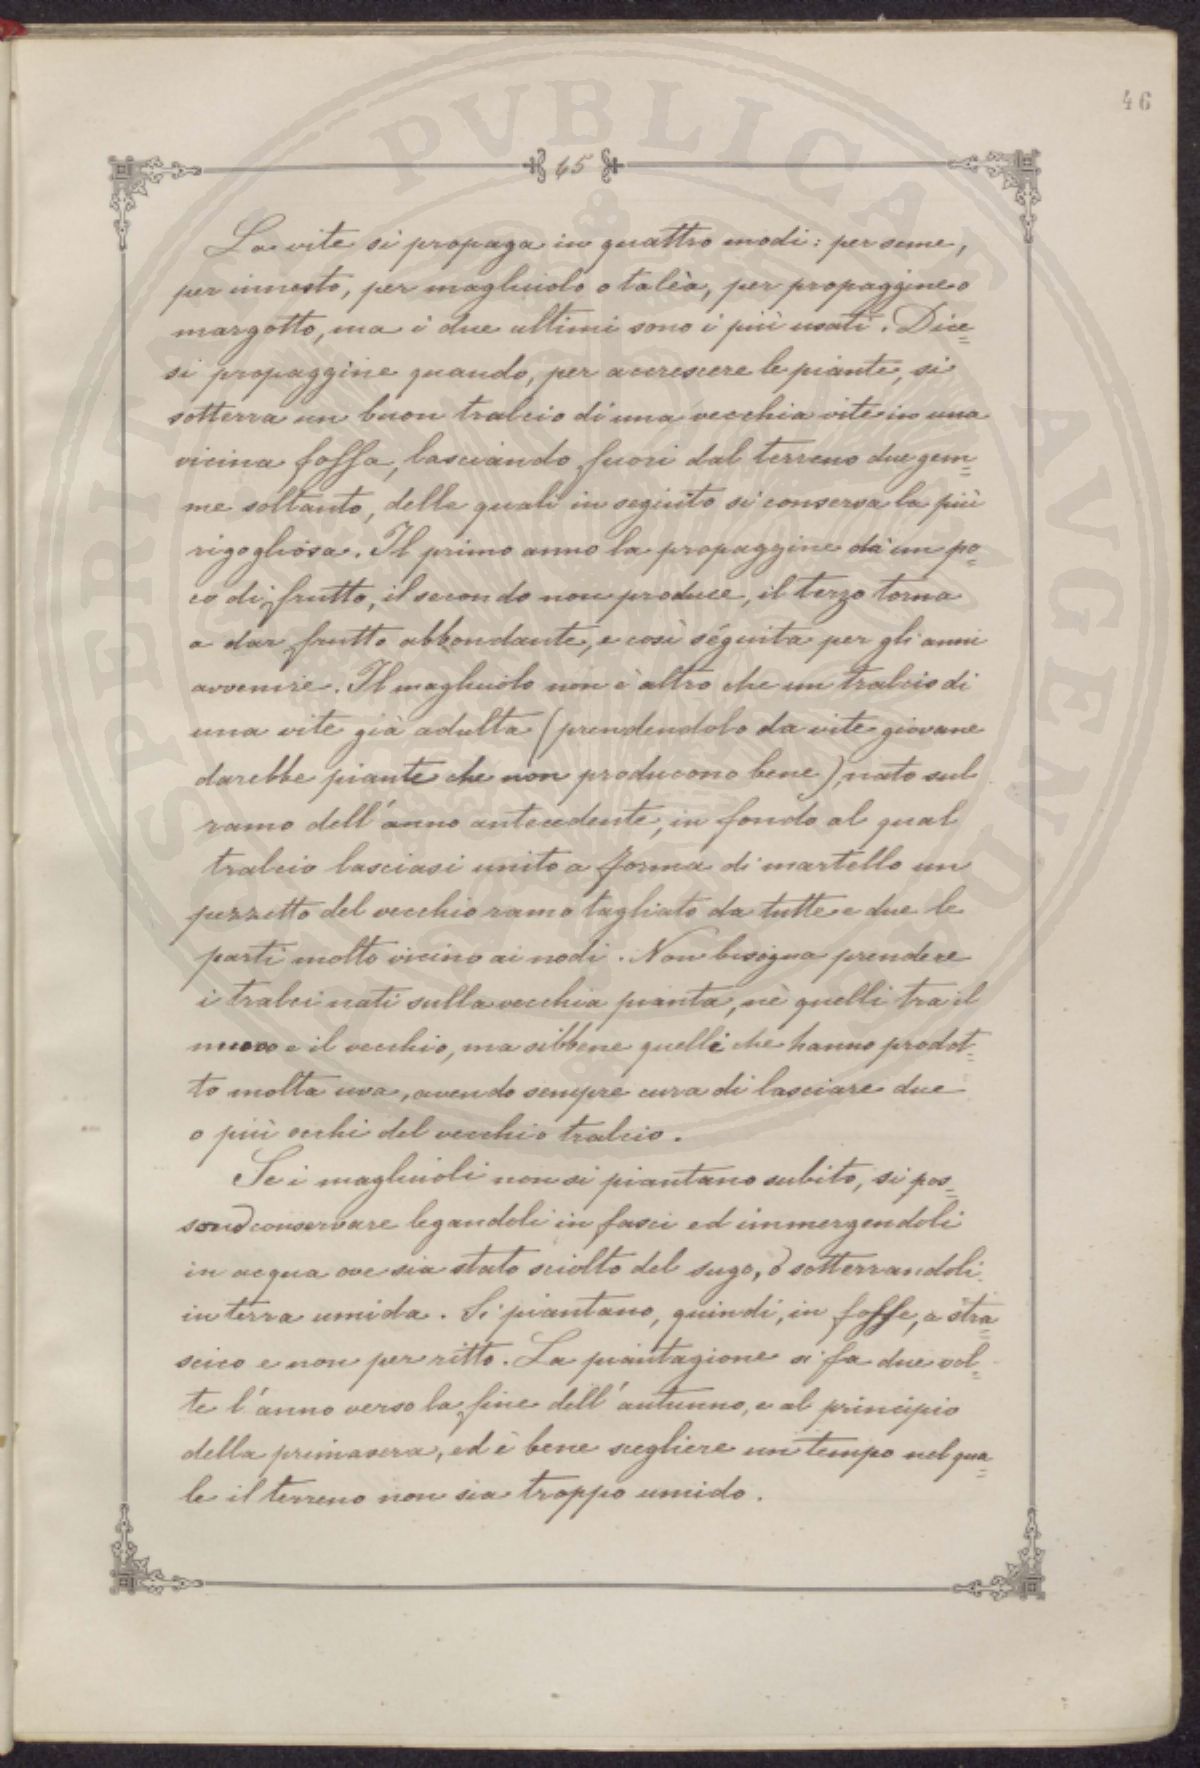 46
45
La vite si propaga in quattro modi: per seme,
per innesto, per magliuolo o talèa, per propaggine o
margotto, ma i due ultimi sono i più usati. Dice=
si propaggine quando, per accrescere le piante, si
sotterra un buon tralcio di una vecchia vite in una
vicina fossa, lasciando fuori dal terreno due gem=
me soltanto, delle quali in seguito si conserva la più
rigogliosa. Il primo anno la propaggine dà un po=
co di frutto, il secondo non produce, il terzo torna
a dar frutto abbondante, e così séguita per gli anni
avvenire. Il magliuolo non è altro che un tralcio di
una vite già adulta (prendendolo da vite giovane
darebbe piante che non producono bene), nato sul
ramo dell'anno antecedente, in fondo al qual
tralcio lasciasi unito a forma di martello un
pezzetto del vecchio ramo tagliato da tutte e due le
parti molto vicino ai nodi. Non bisogna prendere
i tralci nati sulla vecchia pianta, nè quelli tra il
nuovo e il vecchio, ma sibbene quelli che hanno prodot=
to molta uva, avendo sempre cura di lasciare due
o più occhi del vecchio tralcio.
Se i magliuoli non si piantano subito, si pos=
sono conservare legandoli in fasci ed immergendoli
in acqua ove sia stato sciolto del sugo, o sotterrandoli
in terra umida. Si piantano, quindi, in fosse, a stra=
scico e non per ritto. La piantagione si fa due vol=
te l'anno verso la fine dell'autunno, e al principio
della primavera, ed è bene scegliere un tempo nel qua=
le il terreno non sia troppo umido.
PVBLICAE
SPERITAE
AVGEND